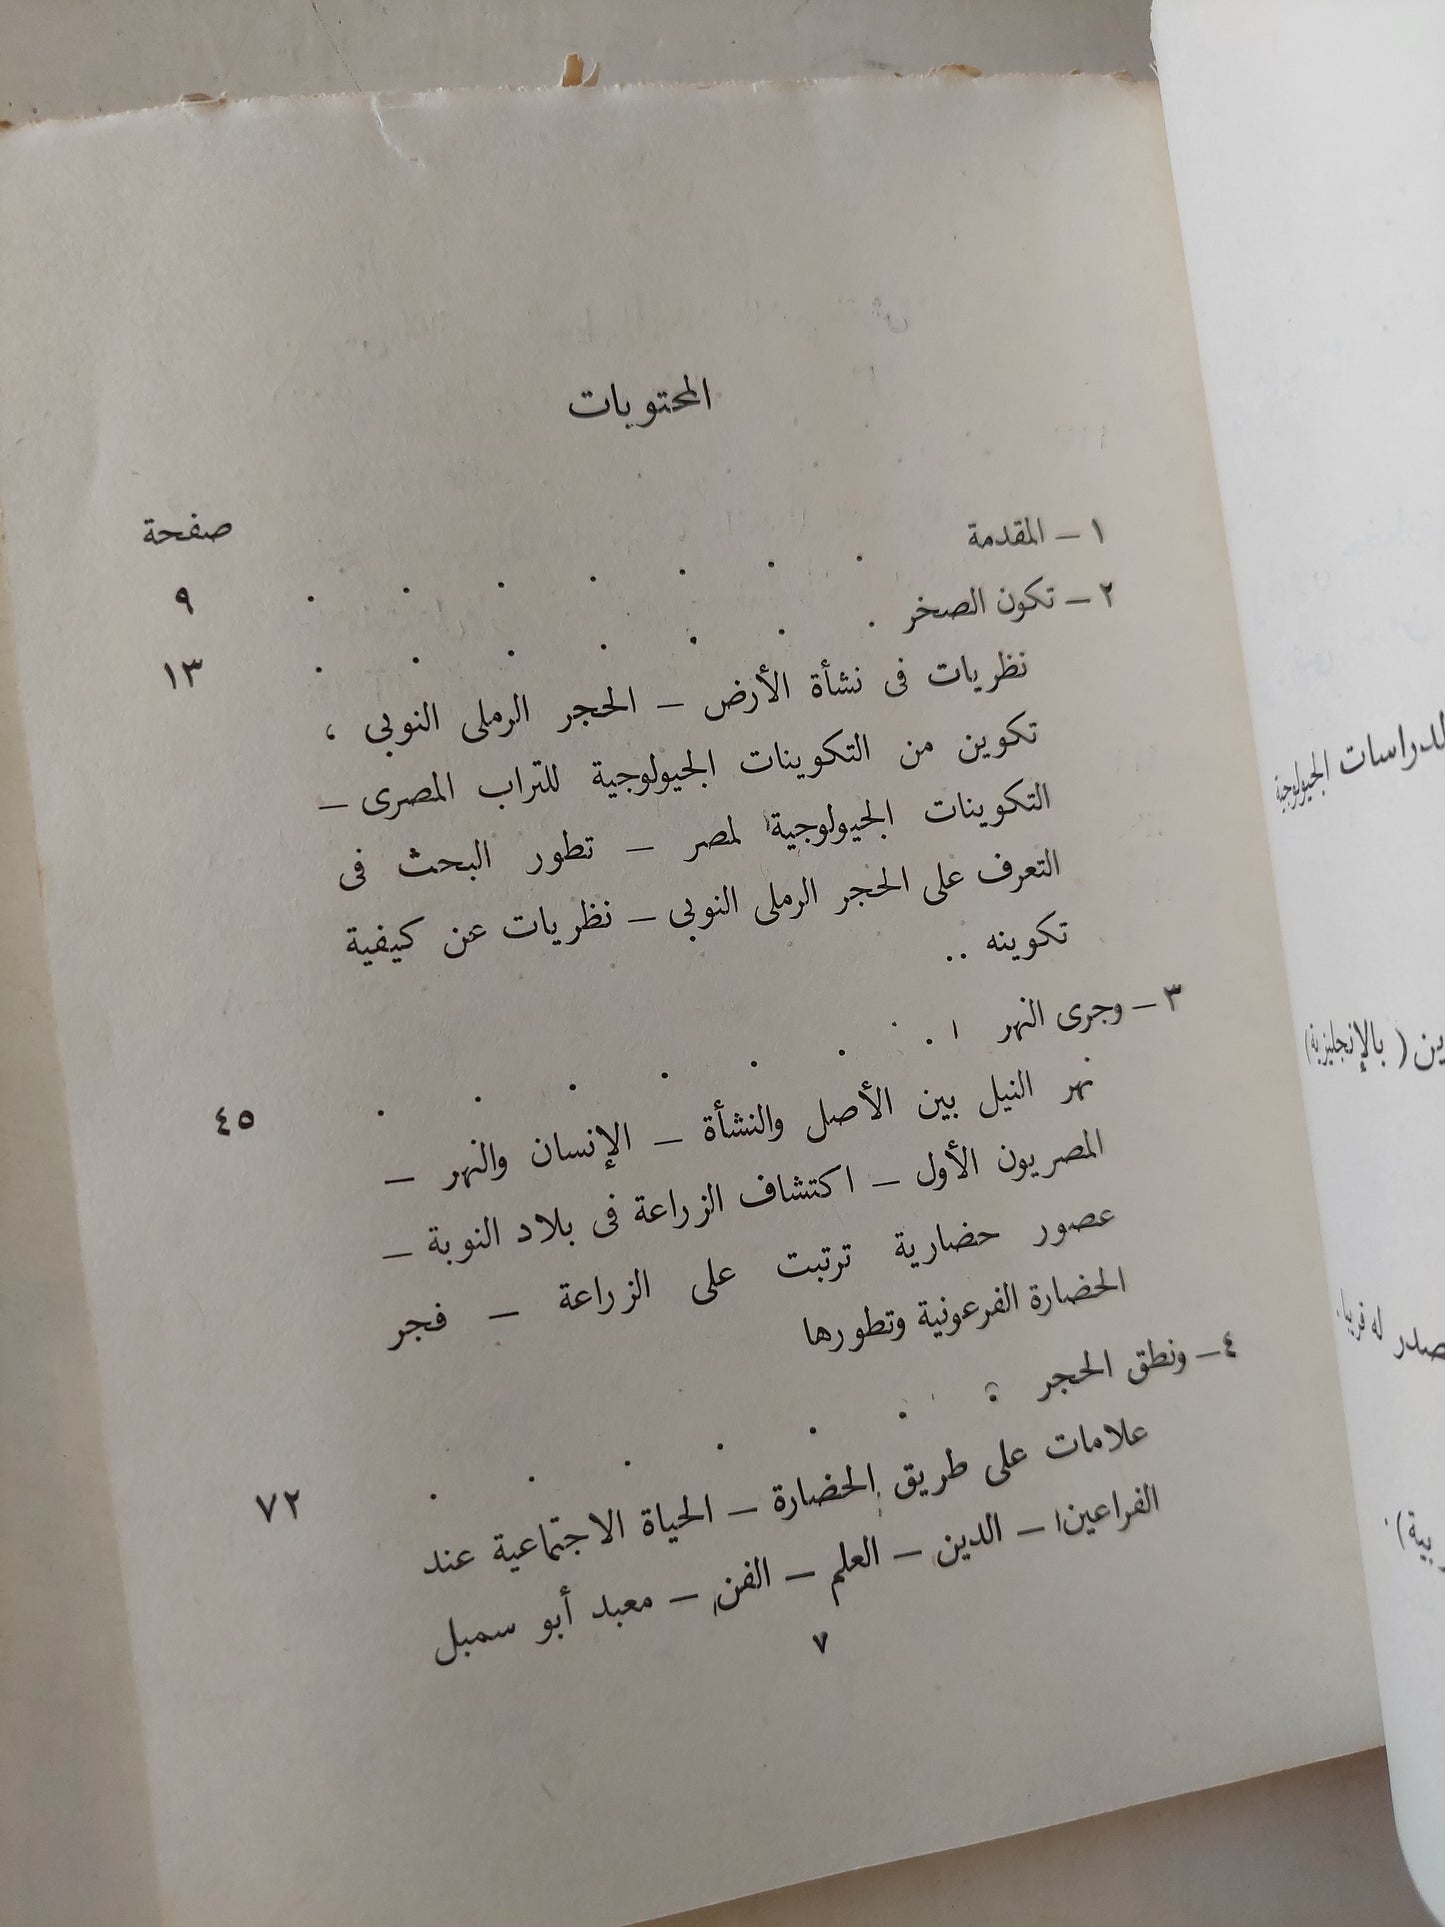 المحتويات
صفحة
١ – المقدمة . . . . . . . ٩
٢ – تكون الصخر . . . . . . . ١٣
نظريات فى نشأة الأرض – الحجر الرملى النوبى ،
تكوين من التكوينات الجيولوجية للتراب المصرى –
التكوينات الجيولوجية لمصر – تطور البحث فى
التعرف على الحجر الرملى النوبى – نظريات عن كيفية
تكوينه ..
٣ – وجرى النهر . . . . . . . ٤٥
نهر النيل بين الأصل والنشأة – الإنسان والنهر –
المصريون الأول – اكتشاف الزراعة فى بلاد النوبة –
عصور حضارية ترتبت على الزراعة – فجر
الحضارة الفرعونية وتطورها
٤ – ونطق الحجر . . . . . . . ٧٢
علامات على طريق الحضارة – الحياة الاجتماعية عند
الفراعين – الدين – العلم – الفن – معبد أبو سمبل
٧
للدراسات الجيولوجية
( بالإنجليزية )
له قريبا .